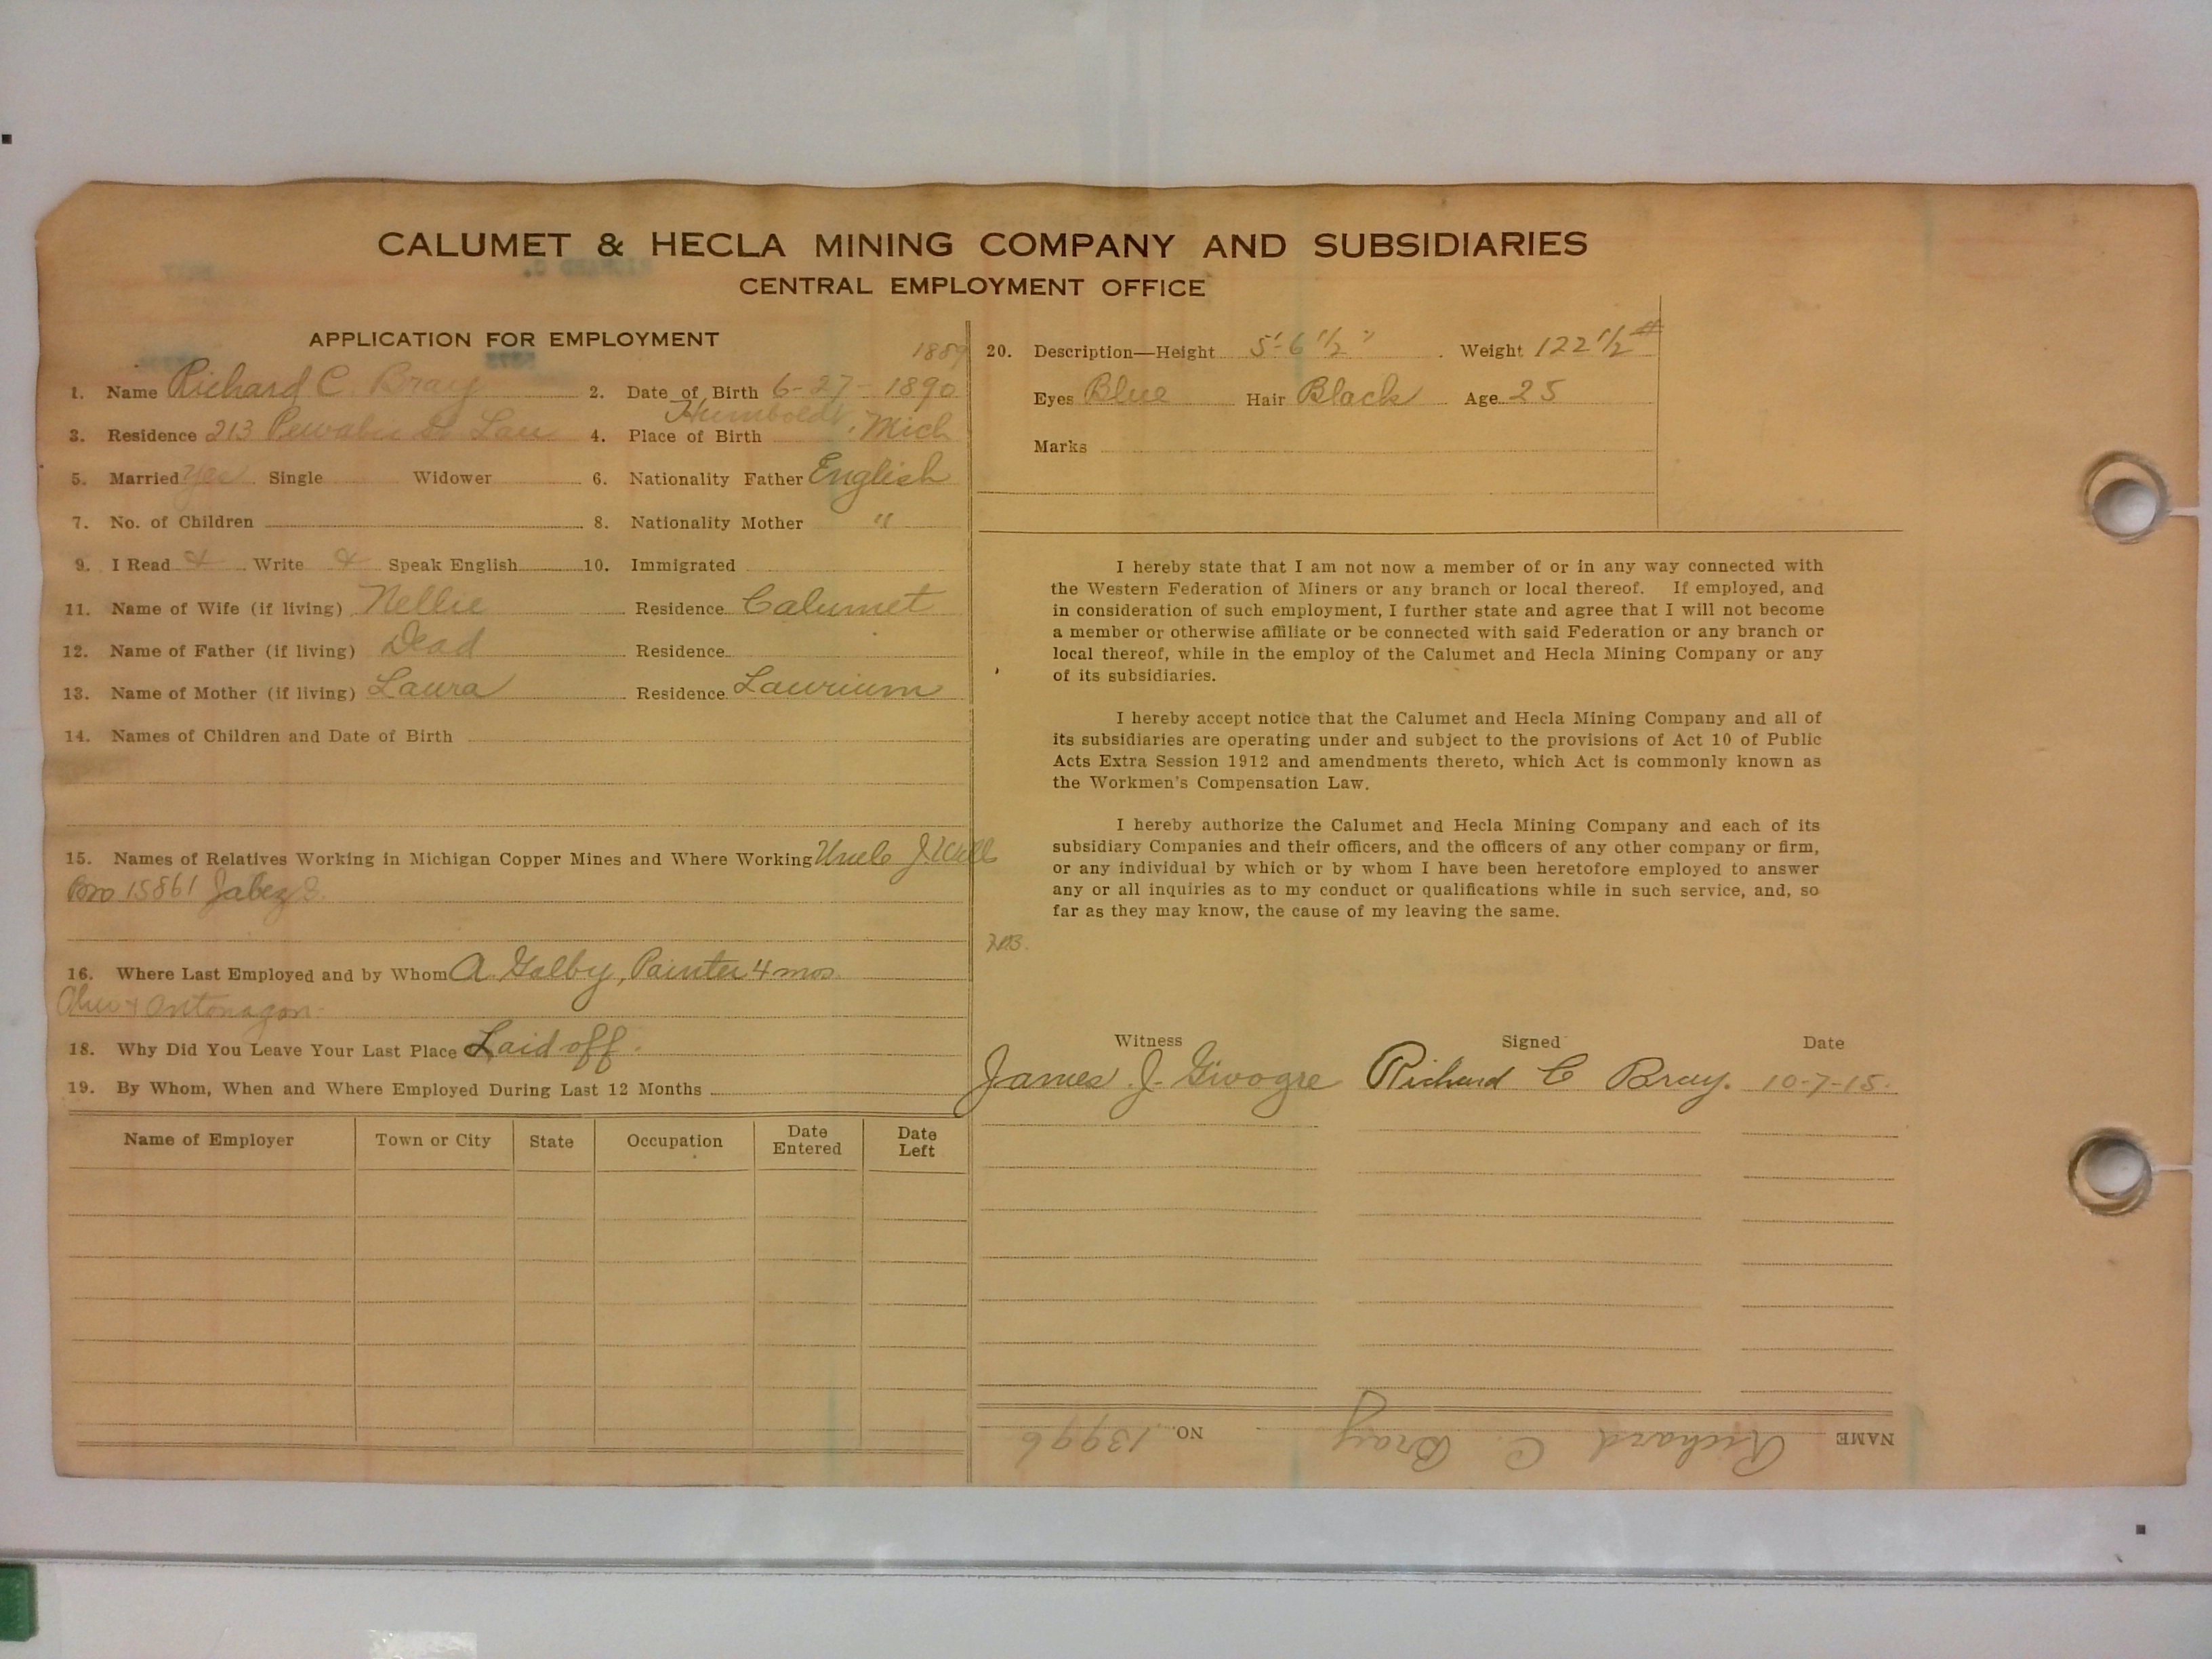 CALUMET & HECLA MINING COMPANY AND SUBSIDIARIES
CENTRAL EMPLOYMENT OFFICE
APPLICATION FOR EMPLOYMENT
1889
1. Name Richard C. Bray 2. Date of Birth 6-27-1890
3. Residence 213 Pewabic St Lau 4. Place of Birth Humboldt, Mich
5. Married yes Single Widower 6. Nationality Father English
7. No. of Children 8. Nationality Mother "
9. I Read & Write & Speak English 10. Immigrated
11. Name of Wife (if living) Nellie Residence Calumet
12. Name of Father (if living) Dead Residence
13. Name of Mother (if living) Laura Residence Laurium
14. Names of Children and Date of Birth
15. Names of Relatives Working in Michigan Copper Mines and Where Working Uncle
Bro 15861 Jabez
16. Where Last Employed and by Whom A. Galby, Painter 4 mos.
Ontonagon
18. Why Did You Leave Your Last Place Laid off.
19. By Whom, When and Where Employed During Last 12 Months
Name of Employer Town or City State Occupation Date Entered Date Left
20. Description—Height 5'-6 1/2" Weight 122 1/2 #
Eyes Blue Hair Black Age 25
Marks
I hereby state that I am not now a member of or in any way connected with
the Western Federation of Miners or any branch or local thereof. If employed, and
in consideration of such employment, I further state and agree that I will not become
a member or otherwise affiliate or be connected with said Federation or any branch or
local thereof, while in the employ of the Calumet and Hecla Mining Company or any
of its subsidiaries.
I hereby accept notice that the Calumet and Hecla Mining Company and all of
its subsidiaries are operating under and subject to the provisions of Act 10 of Public
Acts Extra Session 1912 and amendments thereto, which Act is commonly known as
the Workmen's Compensation Law.
I hereby authorize the Calumet and Hecla Mining Company and each of its
subsidiary Companies and their officers, and the officers of any other company or firm,
or any individual by which or by whom I have been heretofore employed to answer
any or all inquiries as to my conduct or qualifications while in such service, and, so
far as they may know, the cause of my leaving the same.
Witness Signed Date
James J. Richard C Bray. 10-7-15.
NAME Richard C. Bray NO. 13996